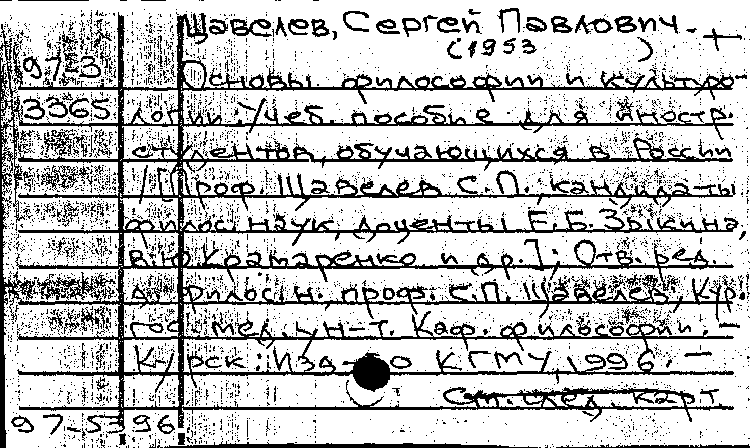 Щавелев, Сергей Павлович. +
(1953 )
97-3 Основы философии и культуро-
3365 логии: Учеб. пособие для иностр.
студентов, обучающихся в России
/[Проф. Щавелев С.П., кандидаты
филос. наук, доценты Е.Б. Зыкина,
В.Ю. Крамаренко и др.]; Отв. ред.
д. филос. н., проф. С.П. Щавелев, Кур.
гос. мед. ун-т. Каф. философии. —
Курск: Изд-во КГМУ, 1996. —
См. след. карт.
97-5396